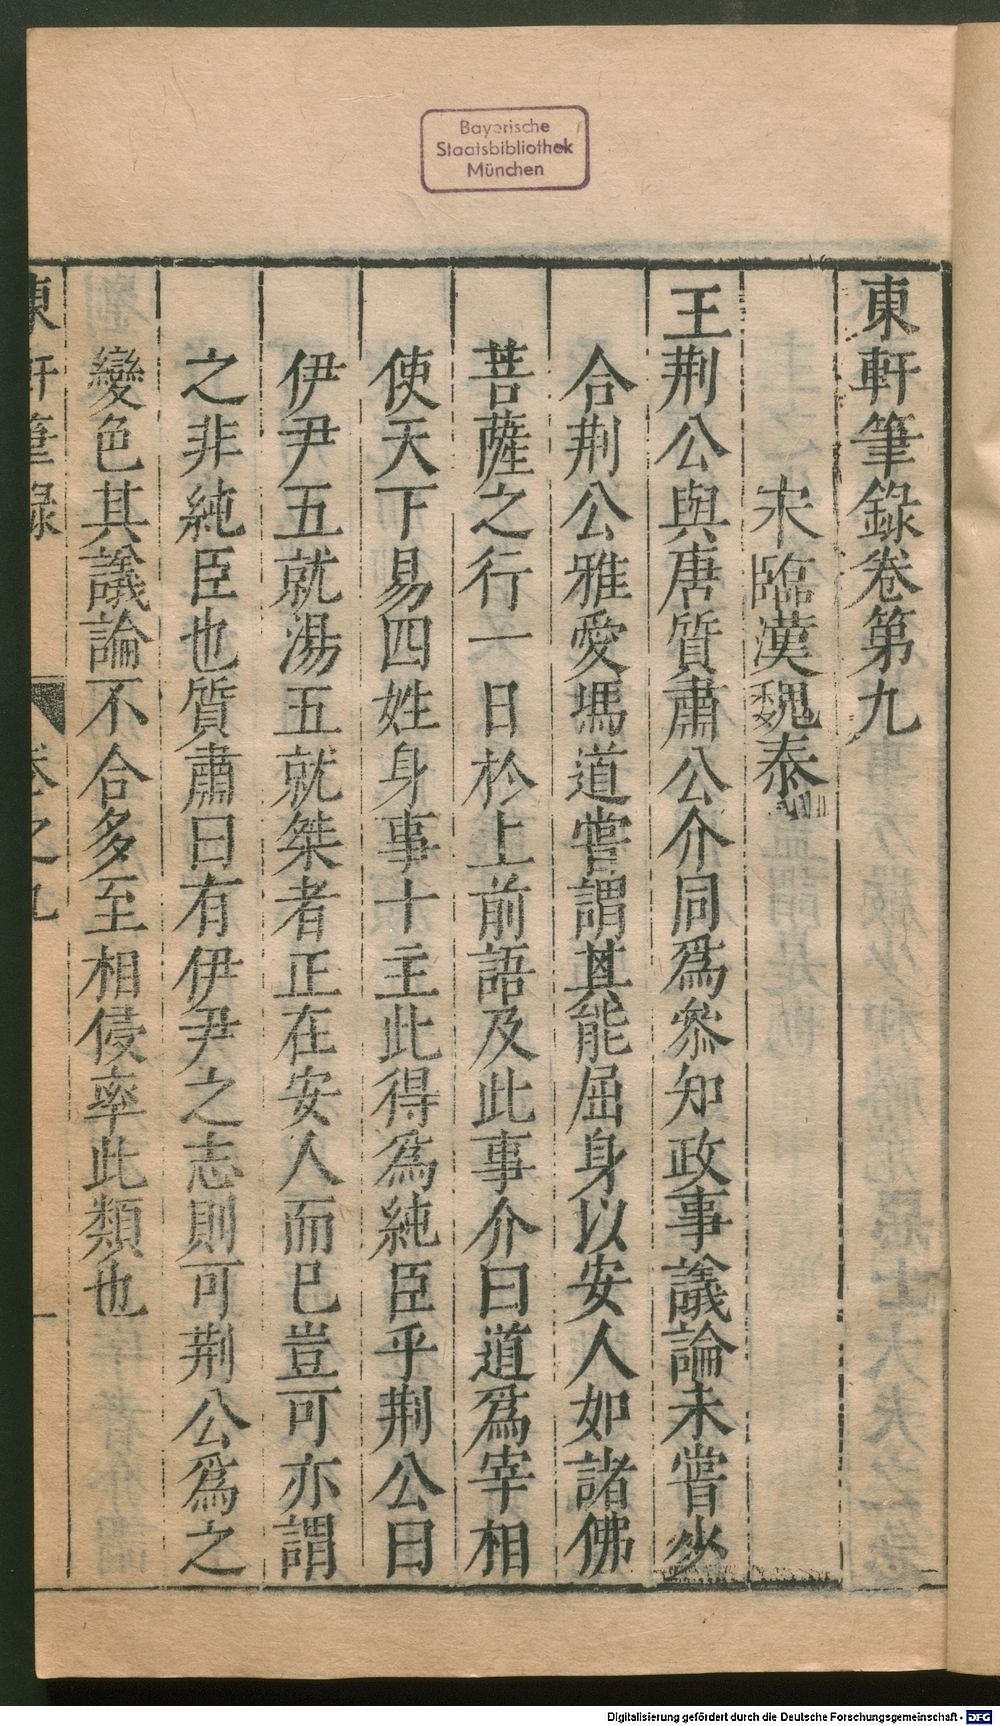 Bayerische
Staatsbibliothek
München
東軒筆錄卷第九
宋臨漢魏泰
王荆公與唐質肅公介同爲參知政事議論未嘗少
合荆公雅愛馮道嘗謂其能屈身以安人如諸佛
菩薩之行一日於上前語及此事介曰道爲宰相
使天下易四姓身事十主此得爲純臣乎荆公曰
伊尹五就湯五就桀者正在安人而已豈可亦謂
之非純臣也質肅曰有伊尹之志則可荆公爲之
變色其議論不合多至相侵率此類也
東軒筆錄 卷之九 一
Digitalisierung gefördert durch die Deutsche Forschungsgemeinschaft - DFG